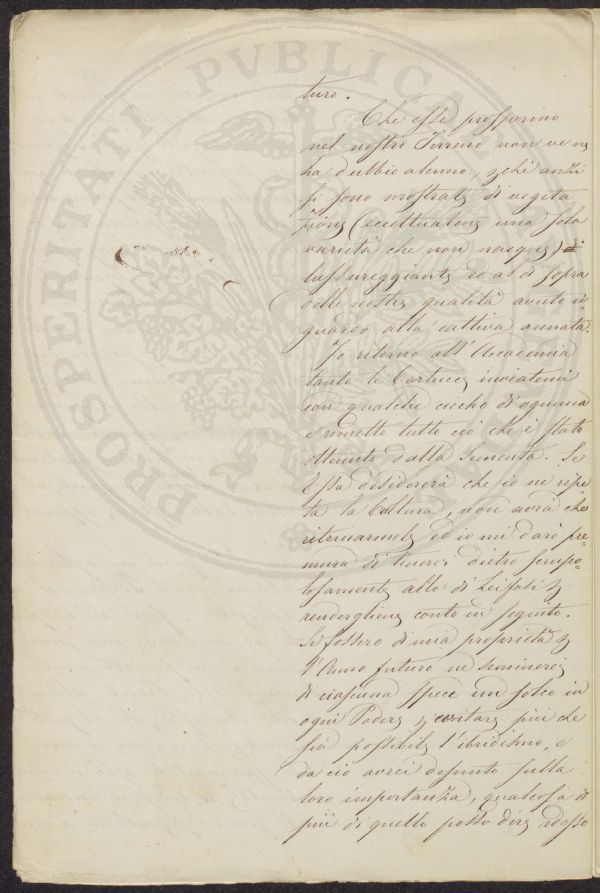 PROSPERITATI PVBLICAE
turo.
Che esse prosperino
nel nostro Terreno non ve n'
ha dubbio alcuno, chè anzi
si sono mostrate di vegeta
zione (eccettuatone una sola
varietà che non nacque)
lussureggiante ed al di sopra
delle nostre qualità avuto ri
guardo alla cattiva annata.
Io ritorno all'Accademia
tanto le Cartucce inviatemi
con qualche chicho di ognuna
e rimetto tutto ciò che è stato
ottenuto dalla Sementa. Se
Essa desidererà che io ne ripe
ta la Cultura, non avrà che
ritornarmele ed io mi darò pre=
mura di tenerci dietro scrupo=
losamente allo di Lei
rendergliene conto in seguito.
Se fossero di mia proprietà
l'Anno futuro ne seminerei
di ciascuna spece un solco in
ogni Podere evitare più che
sia possibile l'ibridismo, e
da ciò avrei desunto sulla
loro importanza, qualcosa di
più di quello posso dire adesso